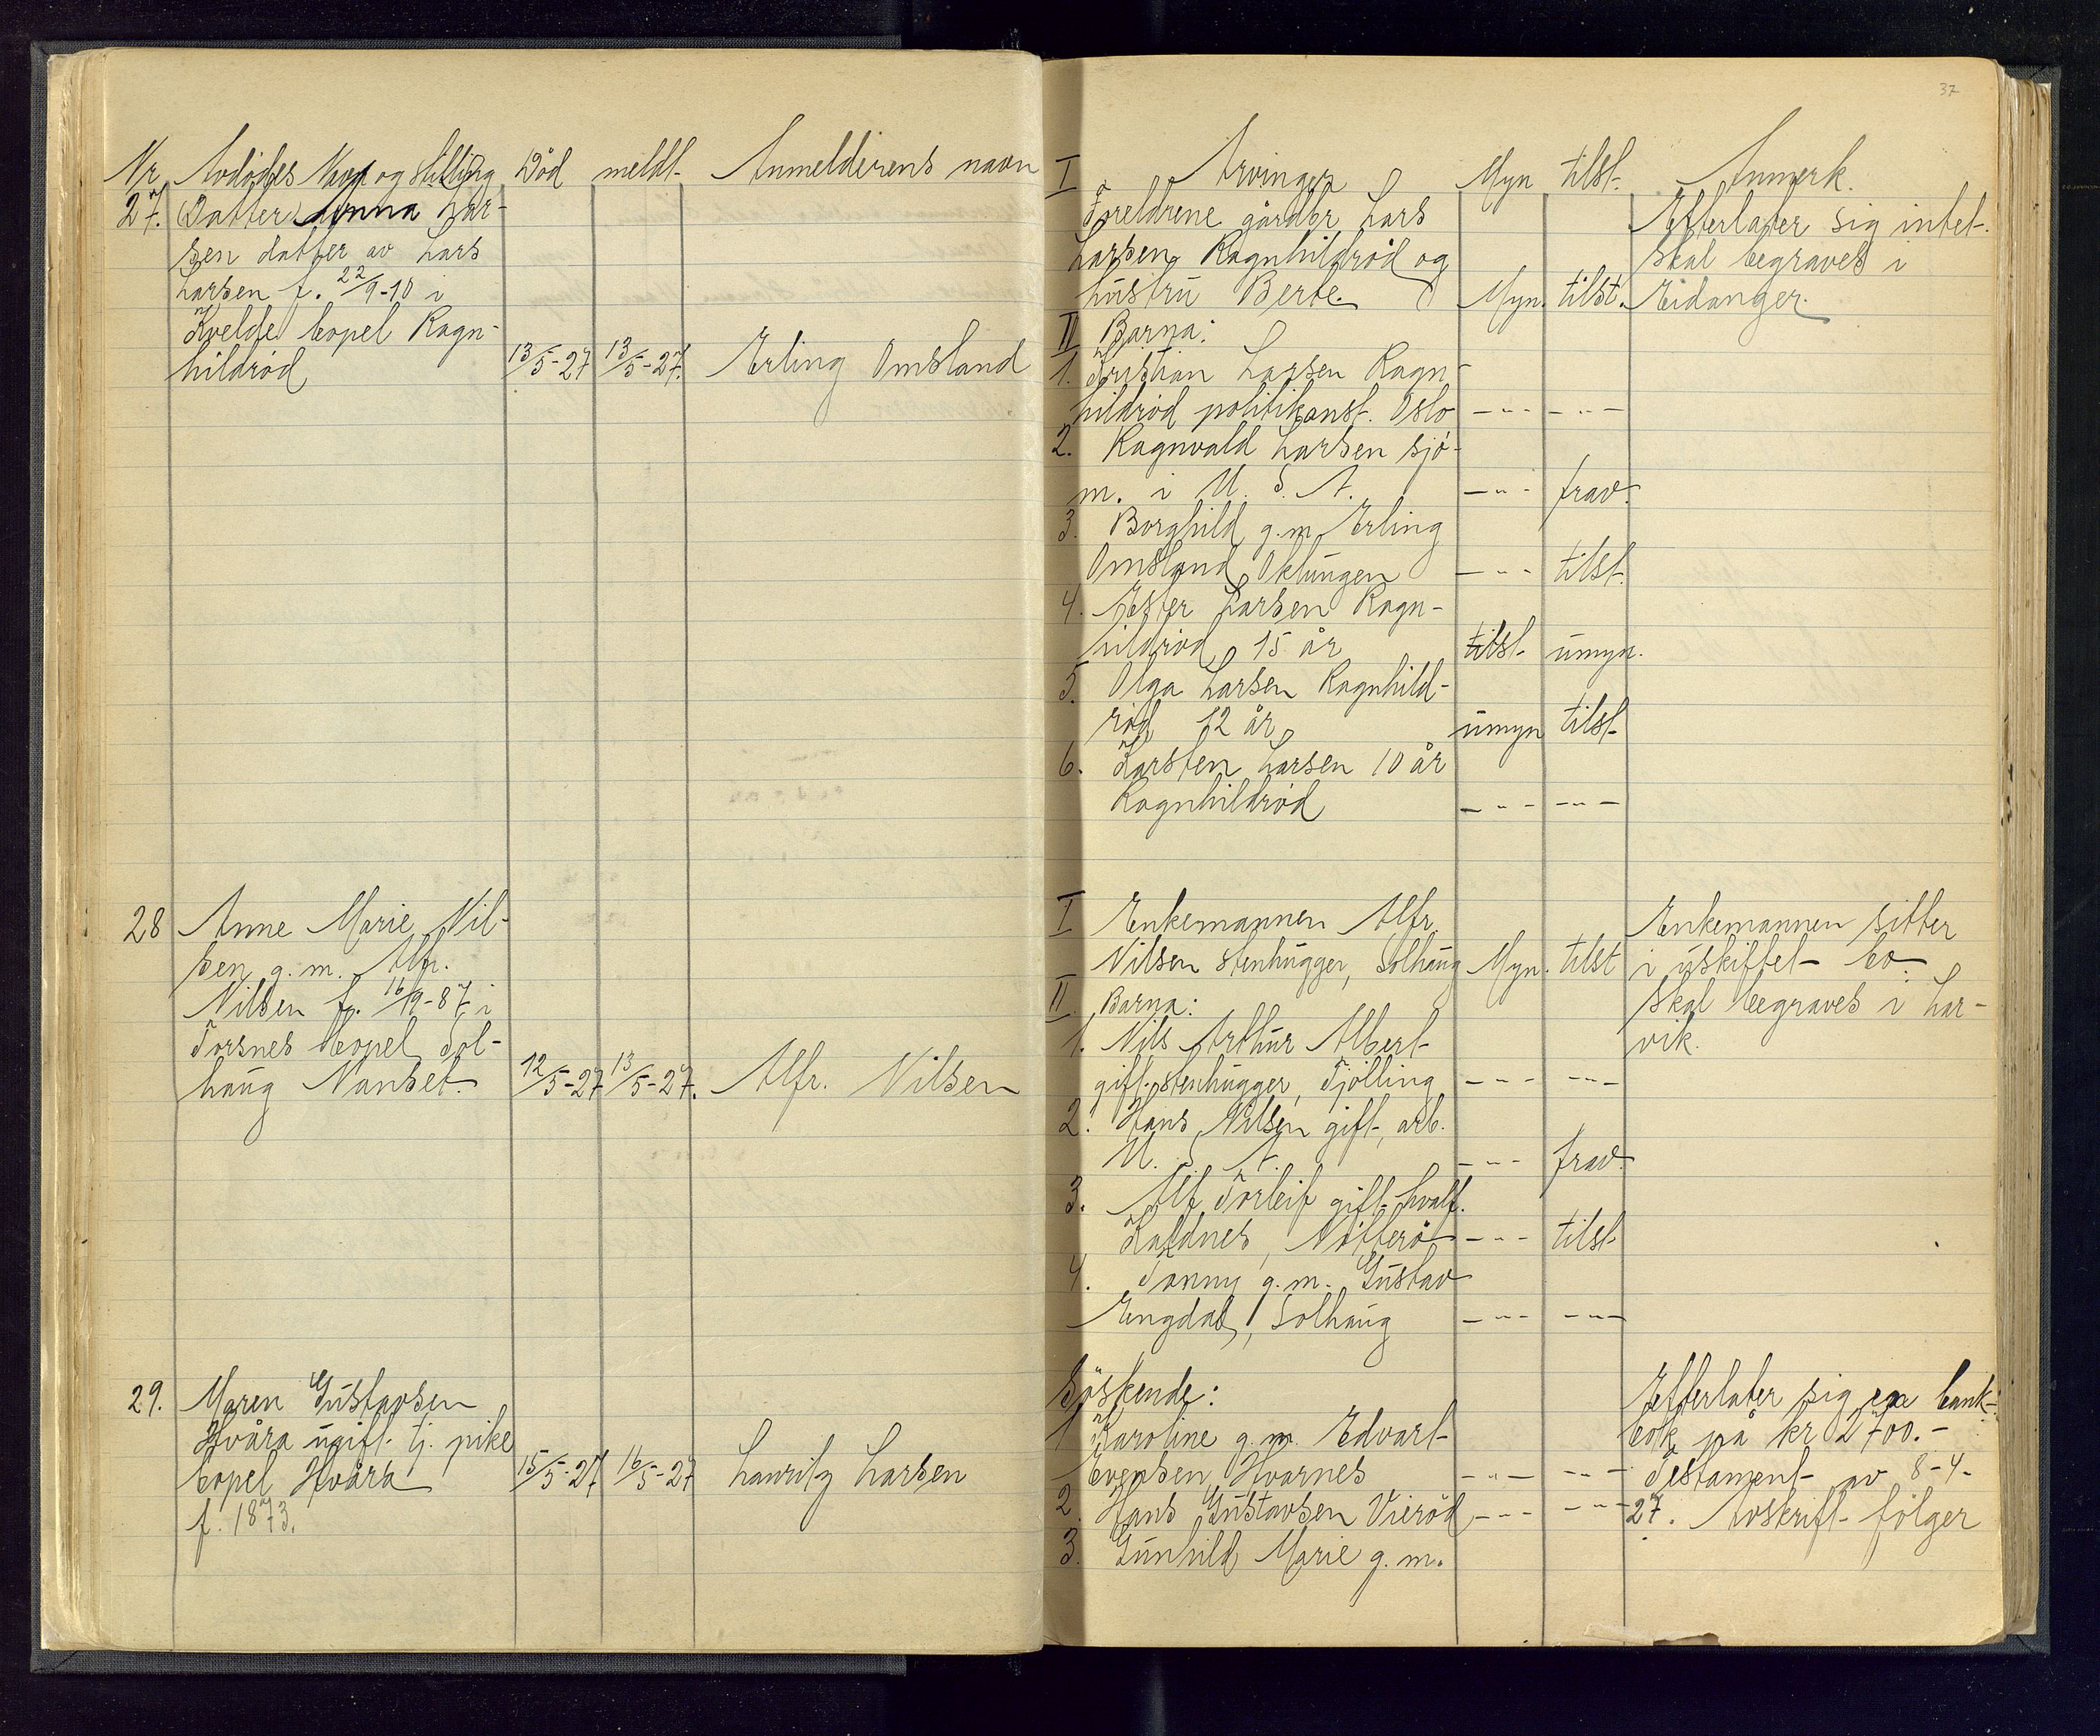 37
Nr. Avdødes Navn og Stilling Død meldt Anmelderens navn
27. Datter Anna Lar-
sen datter av Lars
Larsen f. 22/9-10 i
Kvelde bopel Ragn-
hildrød 13/5-27 13/5-27. Erling Omsland
28 Anne Marie Nil-
sen g.m. Alfr.
Nilsen f. 16/9-87 i
Torsnes bopel Sol-
haug Nanset. 12/5-27 13/5-27. Alfr. Nilsen
29. Maren Gustavsen
Hvåra ugift tj. pike
bopel Hvåra 15/5-27 16/5-27 Lauritz Larsen
f. 1873.
I Arvinger Myn tilst. Anmerk.
Foreldrene gårdbr Lars Efterlater sig intet.
Larsen Ragnhildrød og Skal begraves i
hustru Berte. Myn. tilst. Eidanger.
II Barna:
1. Kristian Larsen Ragn-
hildrød politikonst. Oslo -"- -"-
2. Ragnvald Larsen sjø-
m. i U. S. A. -"- frav.
3. Borghild g.m. Erling
Omsland Oklungen -"- tilst.
4. Ester Larsen Ragn-
hildrød 15 år tilst. umyn.
5. Olga Larsen Ragnhild-
rød 12 år umyn tilst.
6. Karsten Larsen 10 år
Ragnhildrød -"- -"-
I Enkemannen Alfr. Enkemannen sitter
Nilsen stenhugger, Solhaug Myn. tilst i uskiftet bo.
II. Barna: Skal begraves i Lar-
1. Nils Arthur Albert vik.
gift stenhugger, Tjølling -"- -"-
2. Hans Nilsen gift, arb.
U. S. A. -"- frav.
3. Alf Torleif gift hvalf.
Kaldnes, Nøtterø -"- tilst.
4. Tonny g.m. Gustav
Engdal, Solhaug -"- -"-
Søskende: Efterlater sig en bank-
1 Karoline g.m. Edvart bok på kr 2700.-
Evensen Hvarnes -"- -"- Testament av 8-4-
2. Hans Gustavsen Vierød -"- -"- 27. Avskrift følger
3. Gunhild Marie g.m.